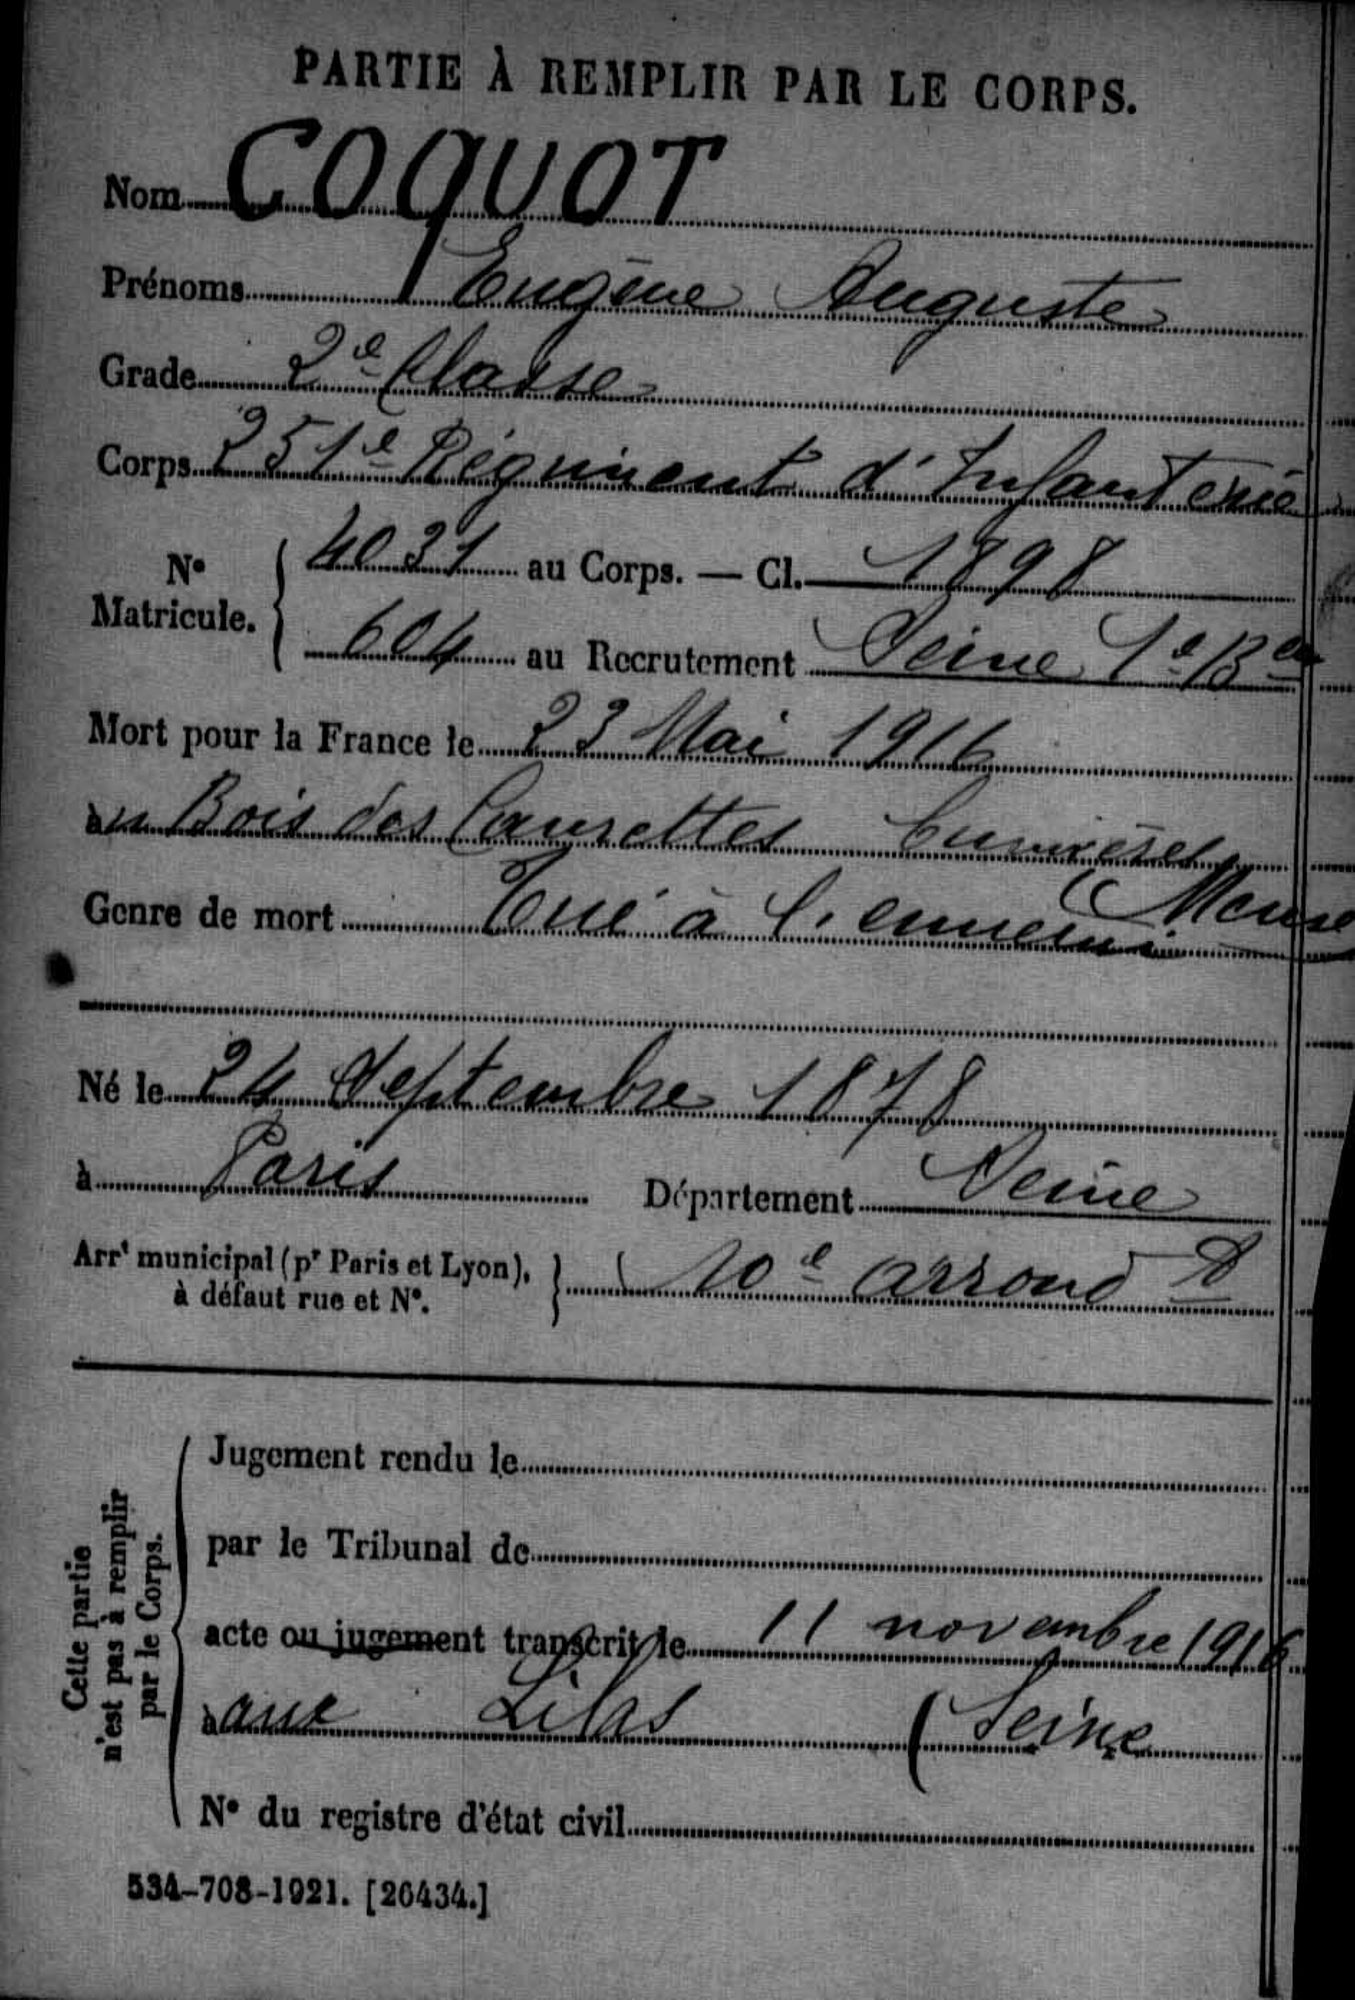 PARTIE À REMPLIR PAR LE CORPS.
Nom COQUOT
Prénoms Eugène Auguste
Grade 2e Classe
Corps 251e Régiment d'Infanterie
N° Matricule. { 4031 au Corps. — Cl. 1898
604 au Recrutement Seine 1e Bau
Mort pour la France le 23 Mai 1916
au Bois des Caurettes Cumières
(Meuse
Genre de mort Tué à l'ennemi
Né le 24 Septembre 1878
à Paris Département Seine
Arrt municipal (pr Paris et Lyon), à défaut rue et N°. } 10e arrond t
Cette partie n'est pas à remplir par le Corps.
Jugement rendu le
par le Tribunal de
acte ou jugement transcrit le 11 novembre 1916
à aux Lilas (Seine
N° du registre d'état civil
534-708-1921. [26434.]